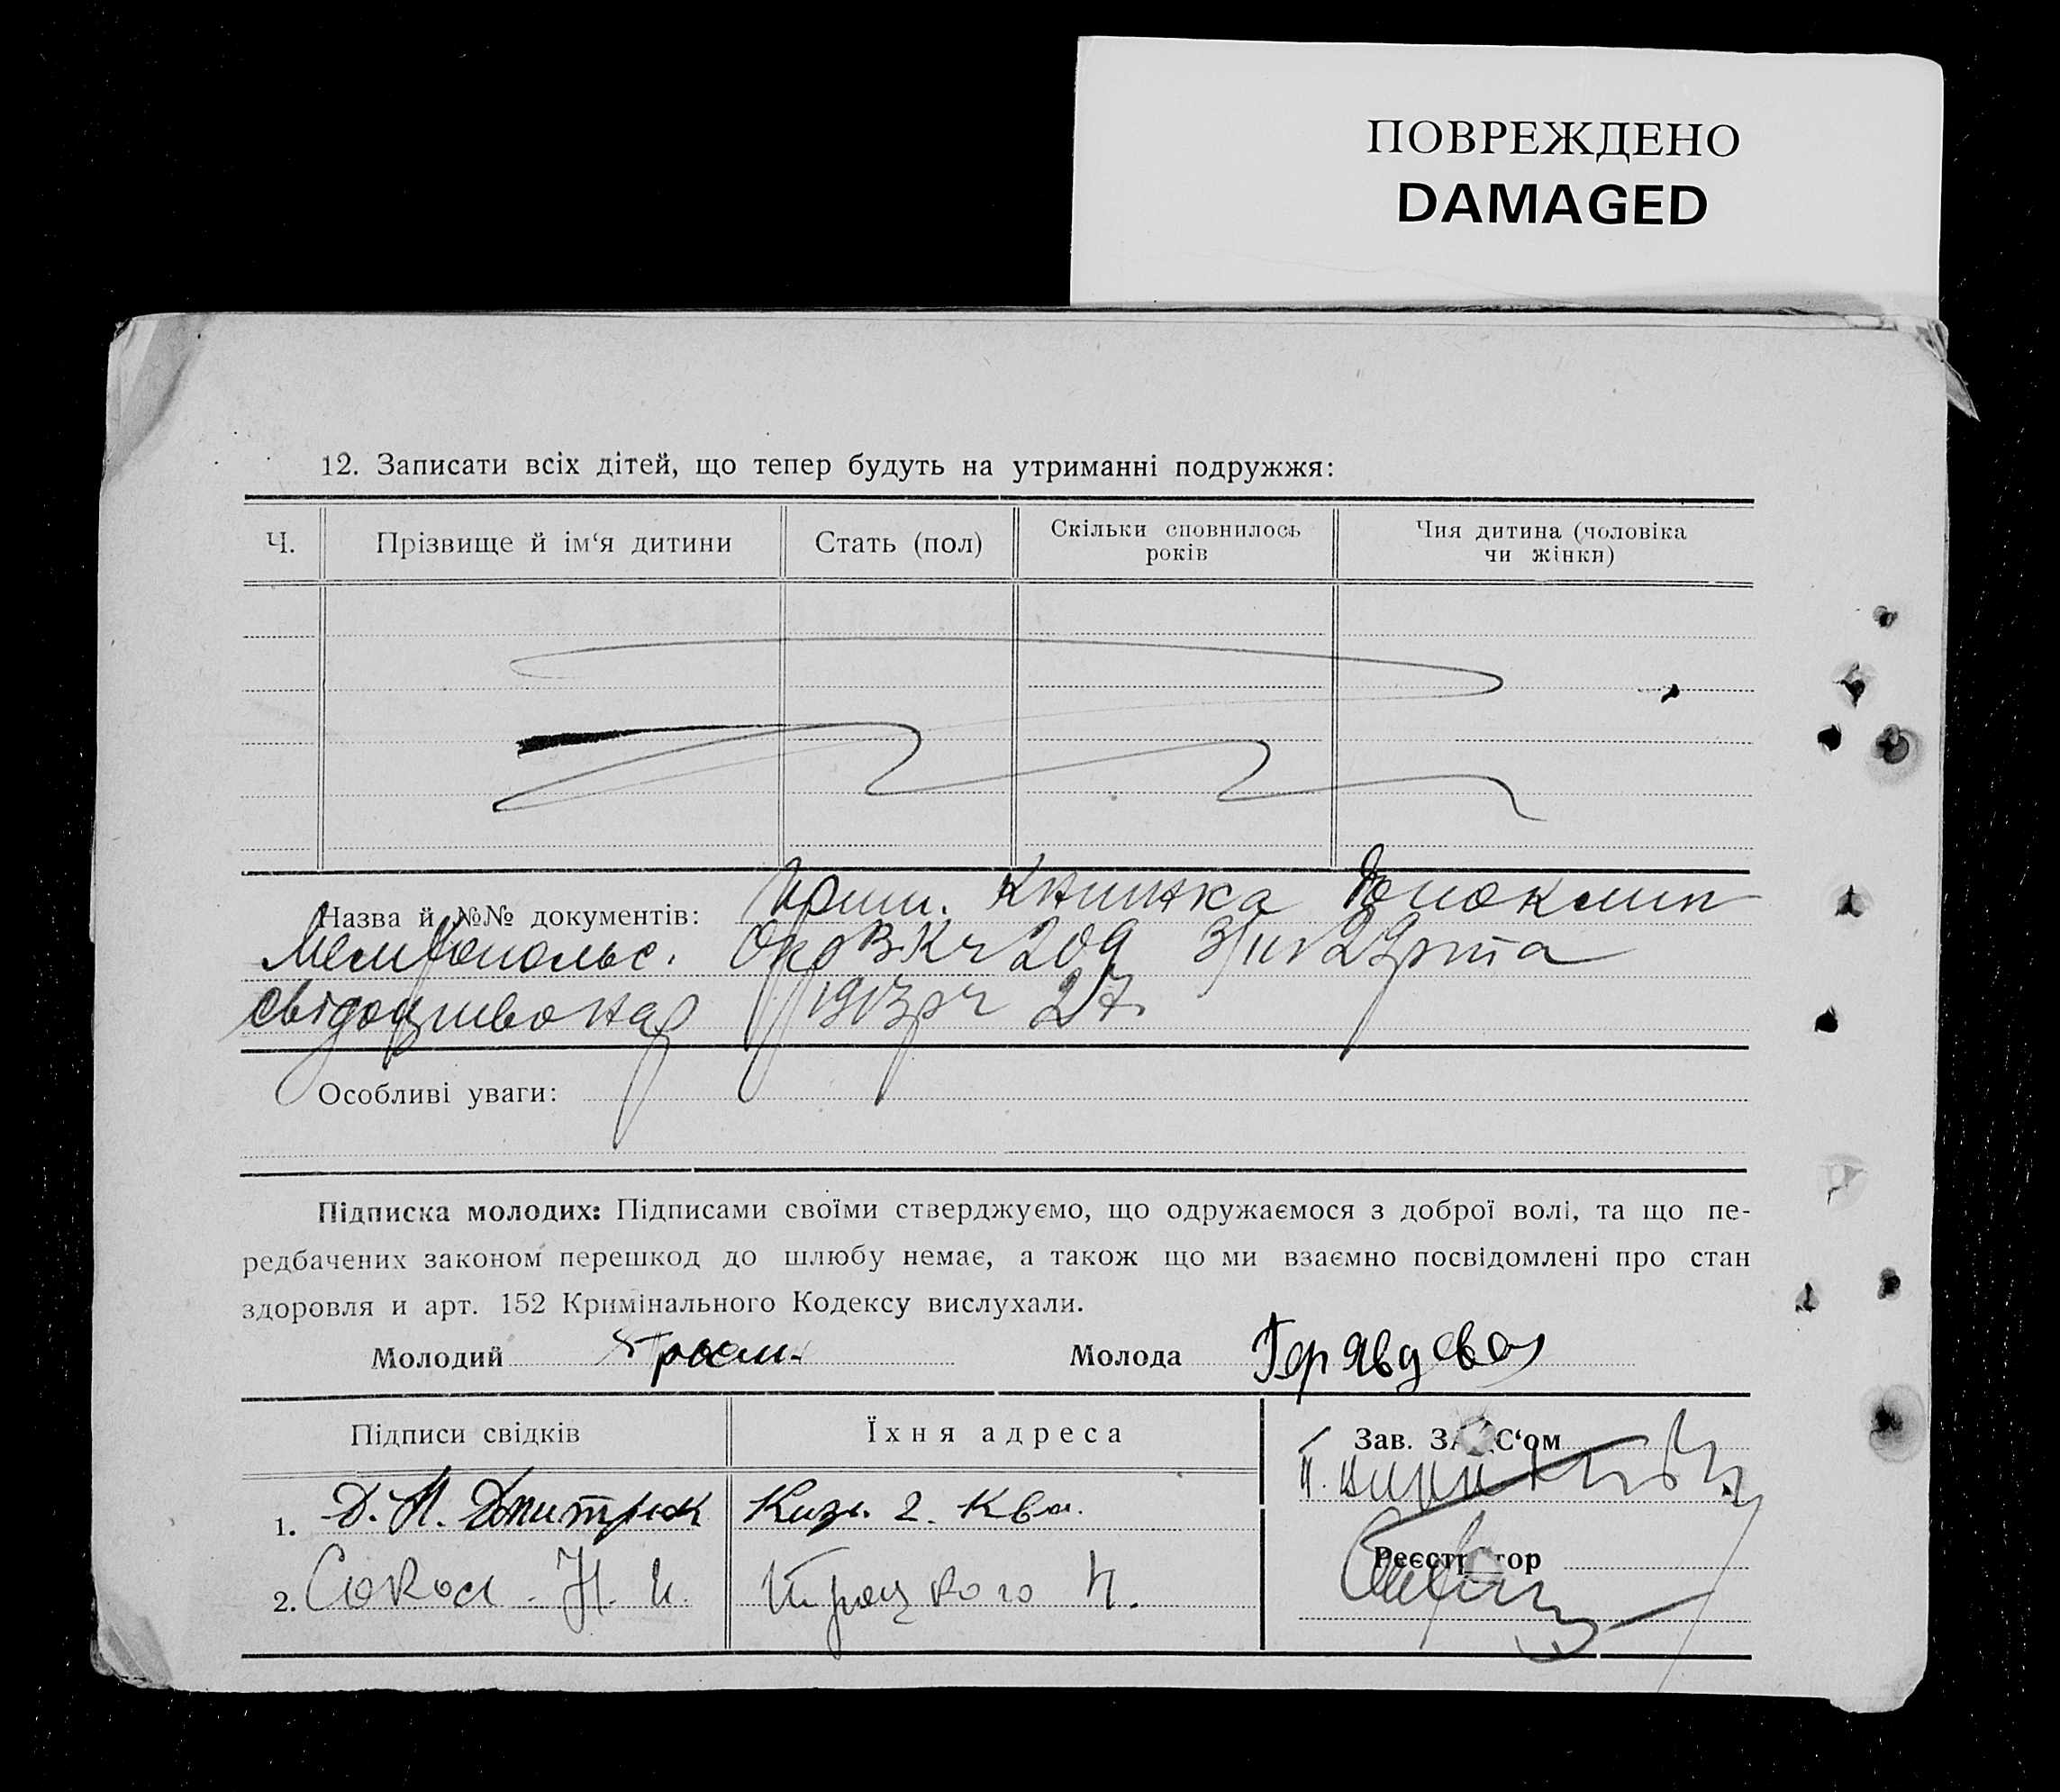 ПОВРЕЖДЕНО
DAMAGED
12. Записати всіх дітей, що тепер будуть на утриманні подружжя:
Ч. Прізвище й ім‘я дитини Стать (пол) Скільки сповнилось років Чия дитина (чоловіка чи жінки)
Назва й №№ документів: книжка
Мелитопольс. ОкрВК ч 209 та
свідоцтво нар 1913р ч 27
Особливі уваги:
Підписка молодих: Підписами своїми стверджуємо, що одружаємося з доброї волі, та що пе-
редбачених законом перешкод до шлюбу немає, а також що ми взаємно посвідомлені про стан
здоровля и арт. 152 Кримінального Кодексу вислухали.
Молодий Молода
Підписи свідків Їхня адреса Зав. ЗАГС‘ом
1. Д. Дмитрюк 2. Ква.
Реєстратор
2. Сокол Н. И. Троцкого